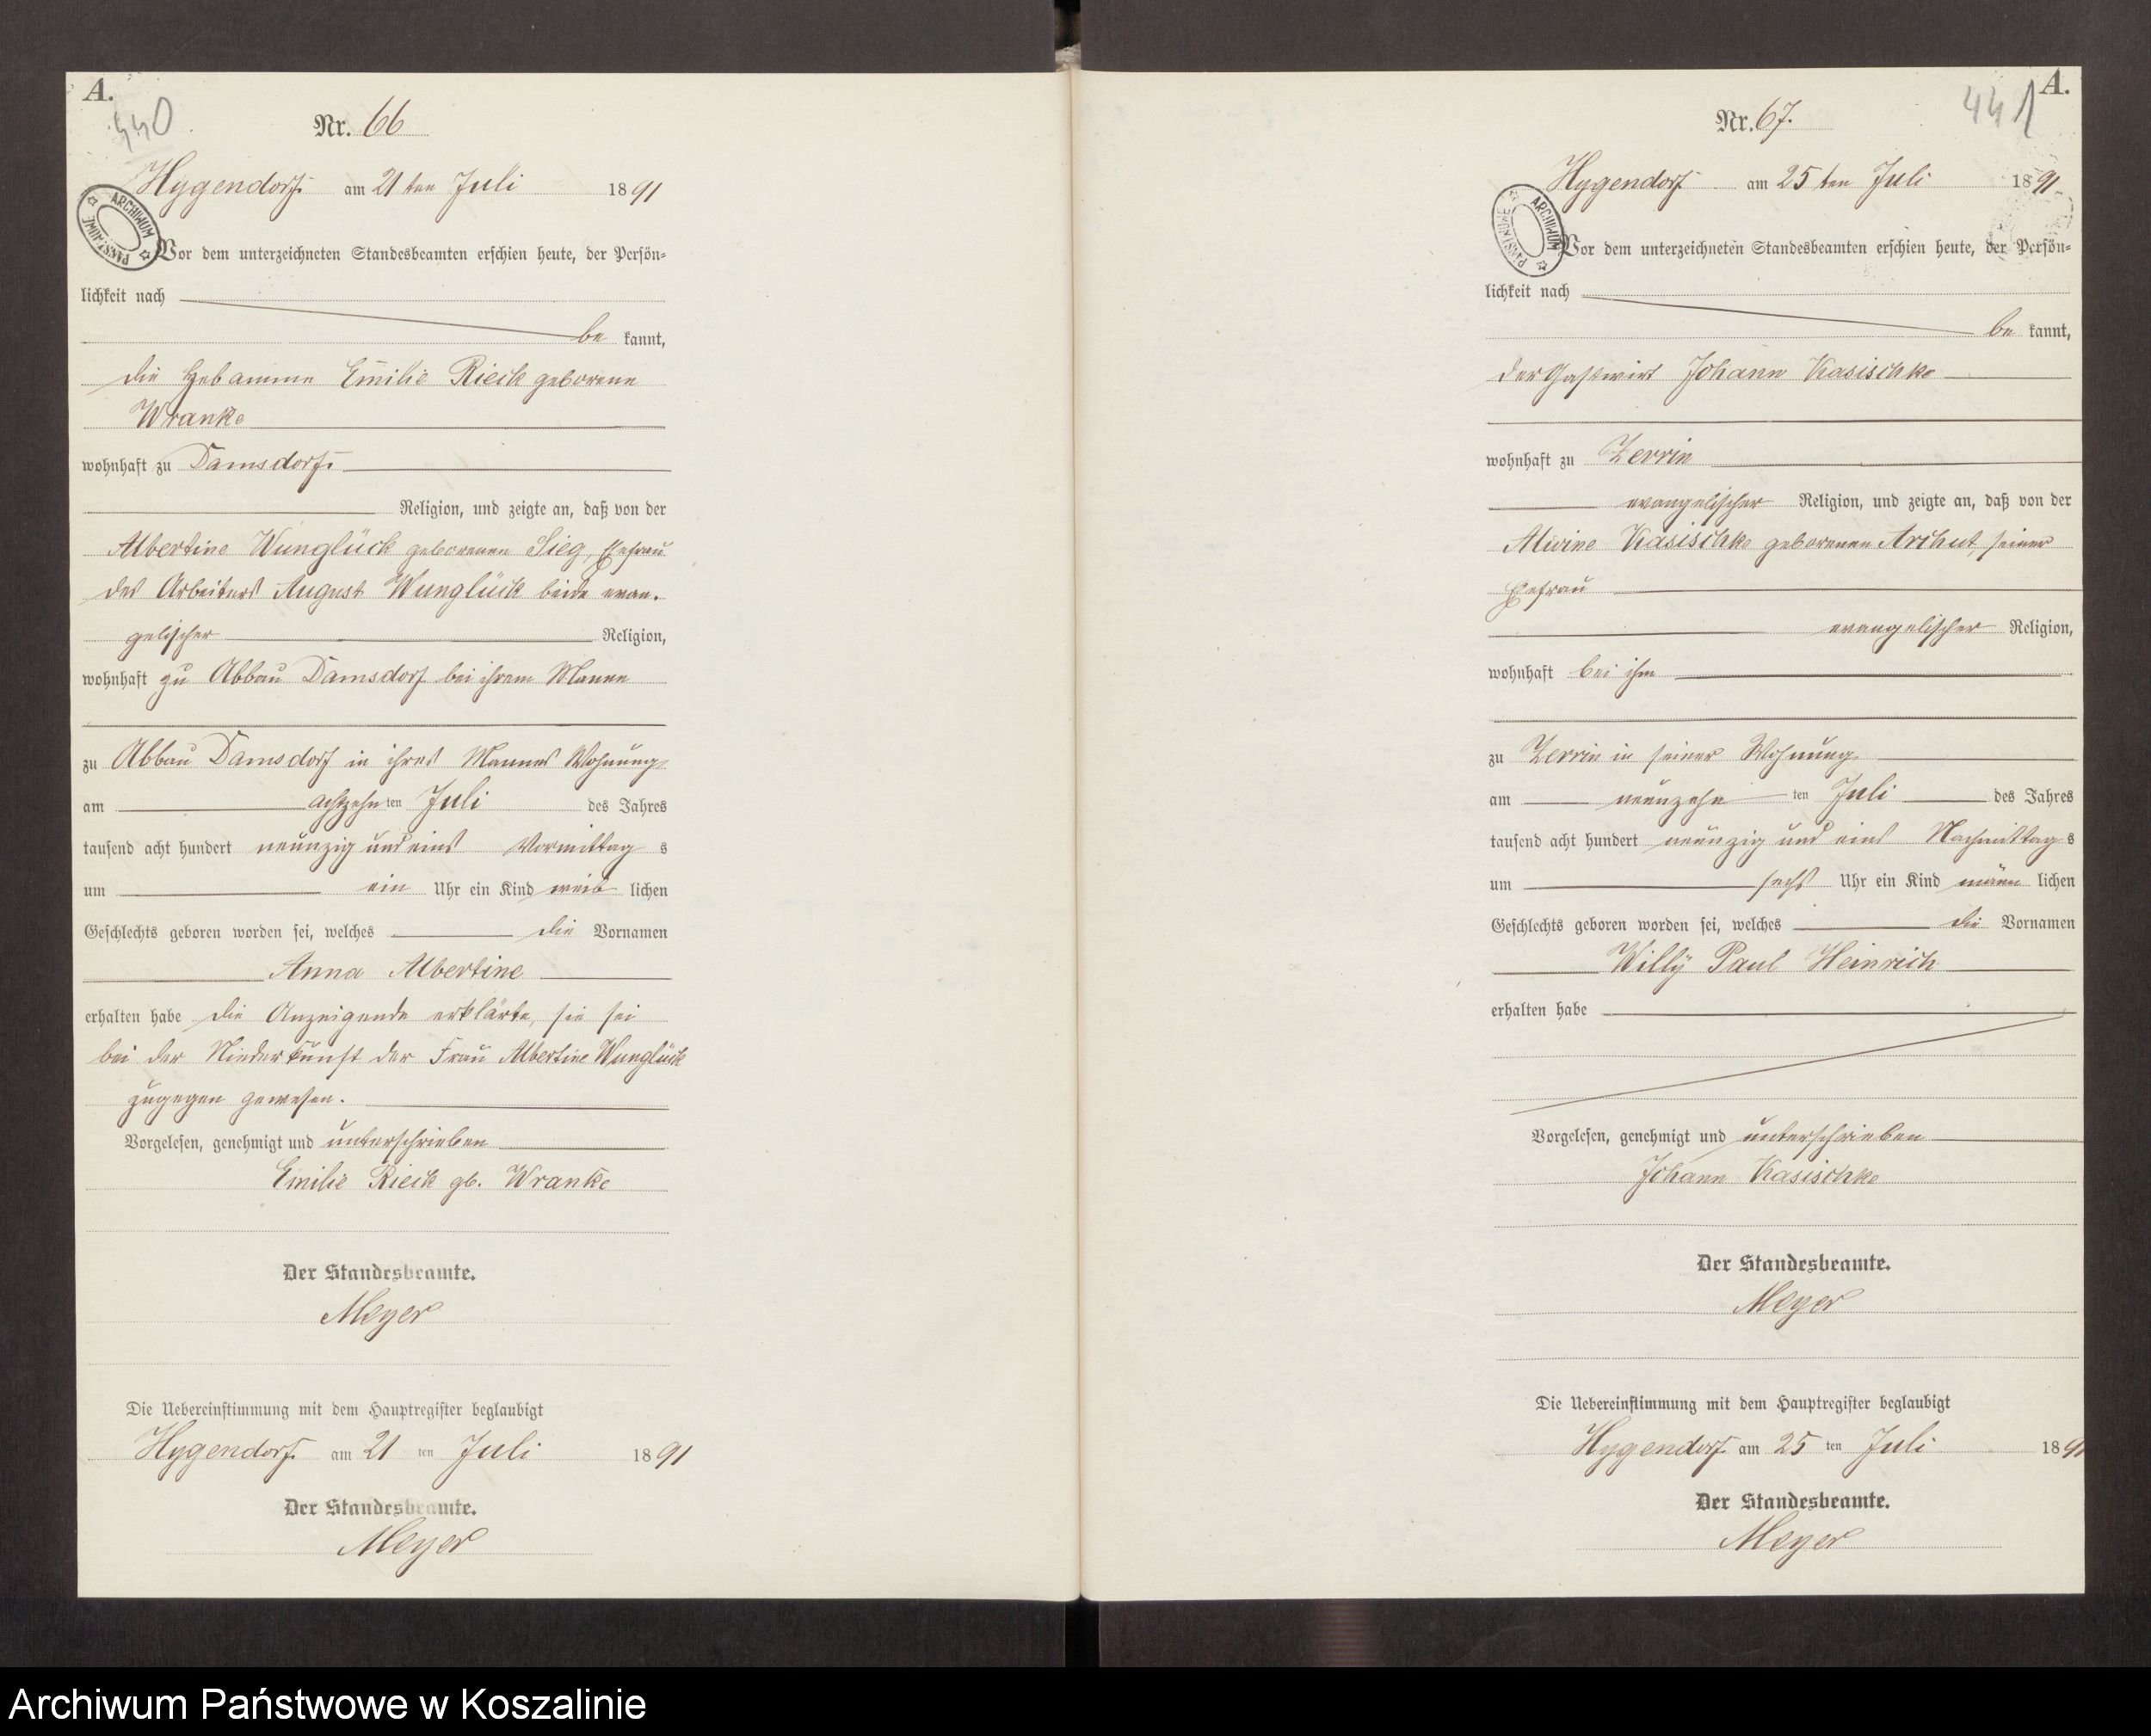 A.
440
Nr. 66
Hygendorf am 21ten Juli 1891
ARCHIWUM PAŃSTWOWE
Vor dem unterzeichneten Standesbeamten erschien heute, der Persön-
lichkeit nach
be kannt,
die Hebamme Emilie Rieck geborene
Wranke
wohnhaft zu Damsdorf
Religion, und zeigte an, daß von der
Albertine Wunglück geborenen Sieg, Ehefrau
des Arbeiters August Wunglück beide evan-
gelischer Religion,
wohnhaft zu Abbau Damsdorf bei ihrem Manne
zu Abbau Damsdorf in ihres Mannes Wohnung
am achtzehn ten Juli des Jahres
tausend acht hundert neunzig und eins Vormittag s
um ein Uhr ein Kind weib lichen
Geschlechts geboren worden sei, welches die Vornamen
Anna Albertine
erhalten habe die Anzeigende erklärte, sie sei
bei der Niederkunft der Frau Albertine Wunglück
zugegen gewesen.
Vorgelesen, genehmigt und unterschrieben
Emilie Rieck gb. Wranke
Der Standesbeamte.
Meyer
Die Uebereinstimmung mit dem Hauptregister beglaubigt
Hygendorf am 21 ten Juli 1891
Der Standesbeamte.
Meyer
A.
441
Nr. 67.
Hygendorf am 25ten Juli 1891
ARCHIWUM PAŃSTWOWE
Vor dem unterzeichneten Standesbeamten erschien heute, der Persön-
lichkeit nach
be kannt,
der Gastwirt Johann Kasischke
wohnhaft zu Zerrin
evangelischer Religion, und zeigte an, daß von der
Alwine Kasischke geborenen Archut, seiner
Ehefrau
evangelischer Religion,
wohnhaft bei ihm
zu Zerrin in seiner Wohnung
am neunzehn ten Juli des Jahres
tausend acht hundert neunzig und eins Nachmittag s
um sechs Uhr ein Kind männ lichen
Geschlechts geboren worden sei, welches die Vornamen
Willy Paul Heinrich
erhalten habe
Vorgelesen, genehmigt und unterschrieben
Johann Kasischke
Der Standesbeamte.
Meyer
Die Uebereinstimmung mit dem Hauptregister beglaubigt
Hygendorf am 25 ten Juli 1891
Der Standesbeamte.
Meyer
Archiwum Państwowe w Koszalinie